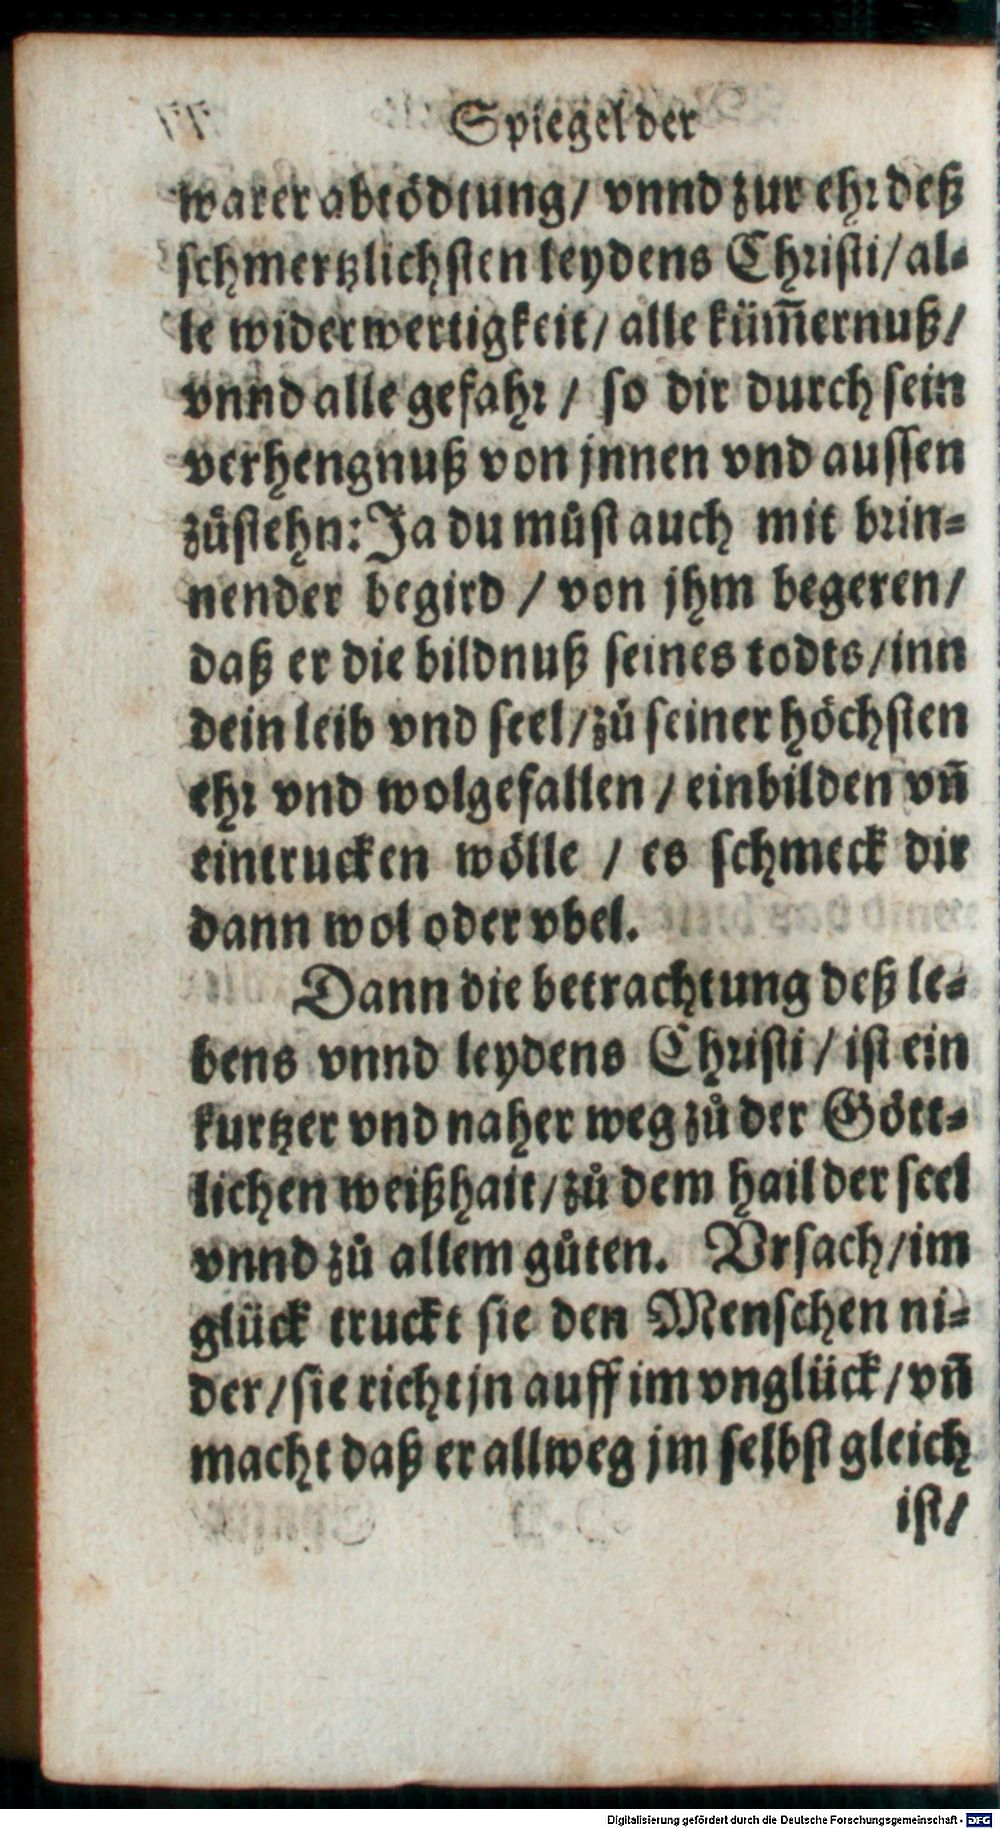 Spiegel der
warer abtödtung/ vnnd zur ehr deß
schmertzlichsten leydens Christi/ al-
le widerwertigkeit/ alle küm̃ernuß/
vnnd alle gefahr/ so dir durch sein
verhengnuß von jnnen vnd aussen
zůstehn: Ja du můst auch mit brin-
nender begird / von jhm begeren/
daß er die bildnuß seines todts/ inn
dein leib vnd seel/ zů seiner höchsten
ehr vnd wolgefallen / einbilden vñ
eintrucken wölle / es schmeck dir
dann wol oder vbel.
Dann die betrachtung deß le-
bens vnnd leydens Christi/ ist ein
kurtzer vnd naher weg zů der Gött-
lichen weißhait/ zů dem hail der seel
vnnd zů allem gůten. Vrsach/ im
glück truckt sie den Menschen ni-
der/ sie richt jn auff im vnglück/ vñ
macht daß er allweg jm selbst gleich
ist/
Digitalisierung gefördert durch die Deutsche Forschungsgemeinschaft - DFG